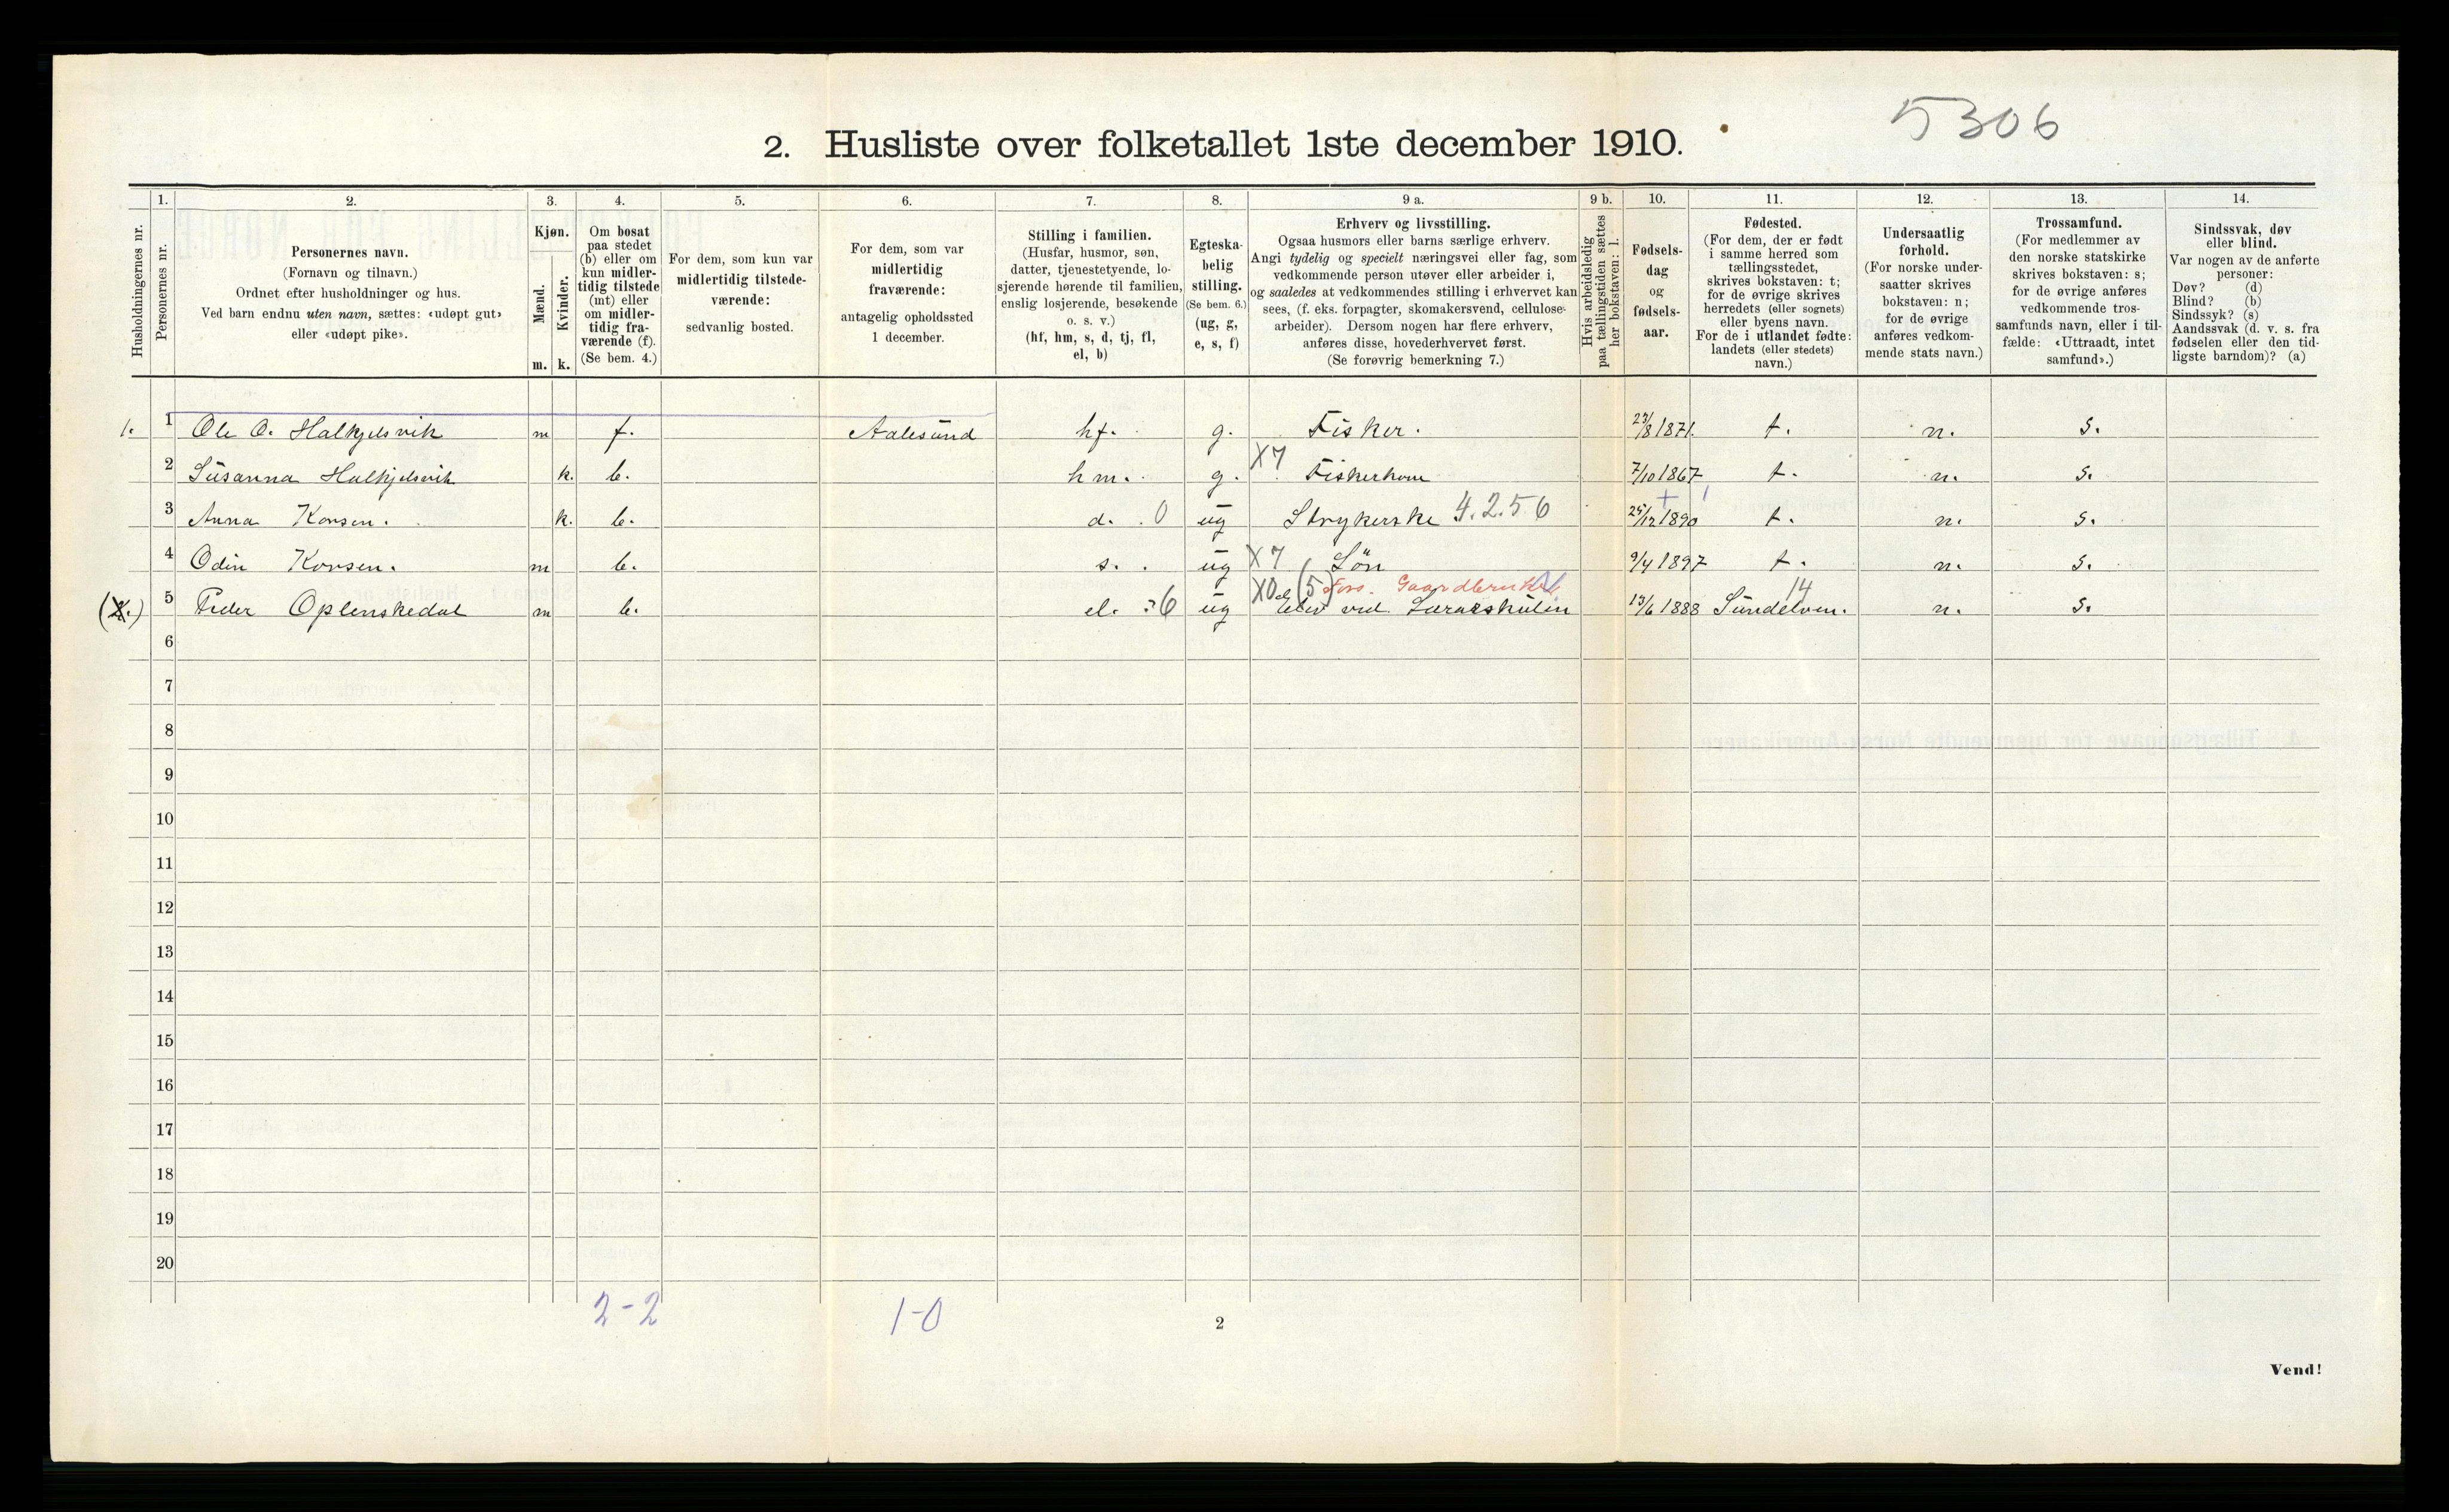 5306
2. Husliste over folketallet 1ste december 1910.
Husholdningernes nr.
1.
Personernes nr.
2.
Personernes navn.
(Fornavn og tilnavn.)
Ordnet efter husholdninger og hus.
Ved barn endnu uten navn, sættes: «udøpt gut»
eller «udøpt pike».
3.
Kjøn.
Mænd.
Kvinder.
m. k.
4.
Om bosat
paa stedet
(b) eller om
kun midler-
tidig tilstede
(mt) eller
om midler-
tidig fra-
værende (f).
(Se bem. 4.)
5.
For dem, som kun var
midlertidig tilstede-
værende:
sedvanlig bosted.
6.
For dem, som var
midlertidig
fraværende:
antagelig opholdssted
1 december.
7.
Stilling i familien.
(Husfar, husmor, søn,
datter, tjenestetyende, lo-
sjerende hørende til familien,
enslig losjerende, besøkende
o. s. v.)
(hf, hm, s, d, tj, fl,
el, b)
8.
Egteska-
belig
stilling.
(Se bem. 6.)
(ug, g,
e, s, f)
9 a.
Erhverv og livsstilling.
Ogsaa husmors eller barns særlige erhverv.
Angi tydelig og specielt næringsvei eller fag, som
vedkommende person utøver eller arbeider i,
og saaledes at vedkommendes stilling i erhvervet kan
sees, (f. eks. forpagter, skomakersvend, cellulose-
arbeider). Dersom nogen har flere erhverv,
anføres disse, hovederhvervet først.
(Se forøvrig bemerkning 7.)
9 b.
Hvis arbeidsledig
paa tællingstiden sættes
her bokstaven: l.
10.
Fødsels-
dag
og
fødsels-
aar.
11.
Fødested.
(For dem, der er født
i samme herred som
tællingsstedet,
skrives bokstaven: t;
for de øvrige skrives
herredets (eller sognets)
eller byens navn.
For de i utlandet fødte:
landets (eller stedets)
navn.)
12.
Undersaatlig
forhold.
(For norske under-
saatter skrives
bokstaven: n;
for de øvrige
anføres vedkom-
mende stats navn.)
13.
Trossamfund.
(For medlemmer av
den norske statskirke
skrives bokstaven: s;
for de øvrige anføres
vedkommende tros-
samfunds navn, eller i til-
fælde: «Uttraadt, intet
samfund».)
14.
Sindssvak, døv
eller blind.
Var nogen av de anførte
personer:
Døv? (d)
Blind? (b)
Sindssyk? (s)
Aandssvak (d. v. s. fra
fødselen eller den tid-
ligste barndom)? (a)
1. 1 Ole O. Halkjelsvik m f. Aalesund hf. g. Fisker. 27/8 1871. t. n. s.
2 Susanna Halkjelsvik k. b. hm. g. X7 Fiskerkone 7/10 1867 t. n. s.
3 Anna Korsen. k. b. d. 0 ug Strykerske 4.2.56 25/12 1890 t. n. s.
4 Odin Korsen. m b. s. ug X7 Sön 9/4 1897 t. n. s.
X0 (5) Fors. Gaardbruker 14
5 Peder Oplenskedal m b. el. 6 ug Elev ved Lærarskulen 13/6 1888 Sundelven. n. s.
6
7
8
9
10
11
12
13
14
15
16
17
18
19
20
2-2
1-0
2
Vend!